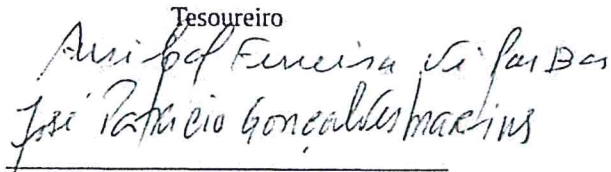 Tesoureiro
Anibal Ferreira
José Patricio Gonçalves Martins